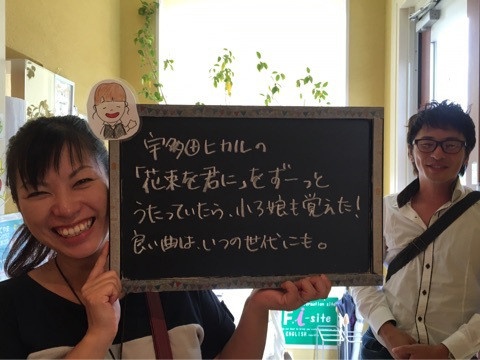 宇多田ヒカルの
「花束を君に」をずーっと
うたっていたら、小3娘も覚えた!
良い曲は、いつの世代にも。
i-site
ENGLISH